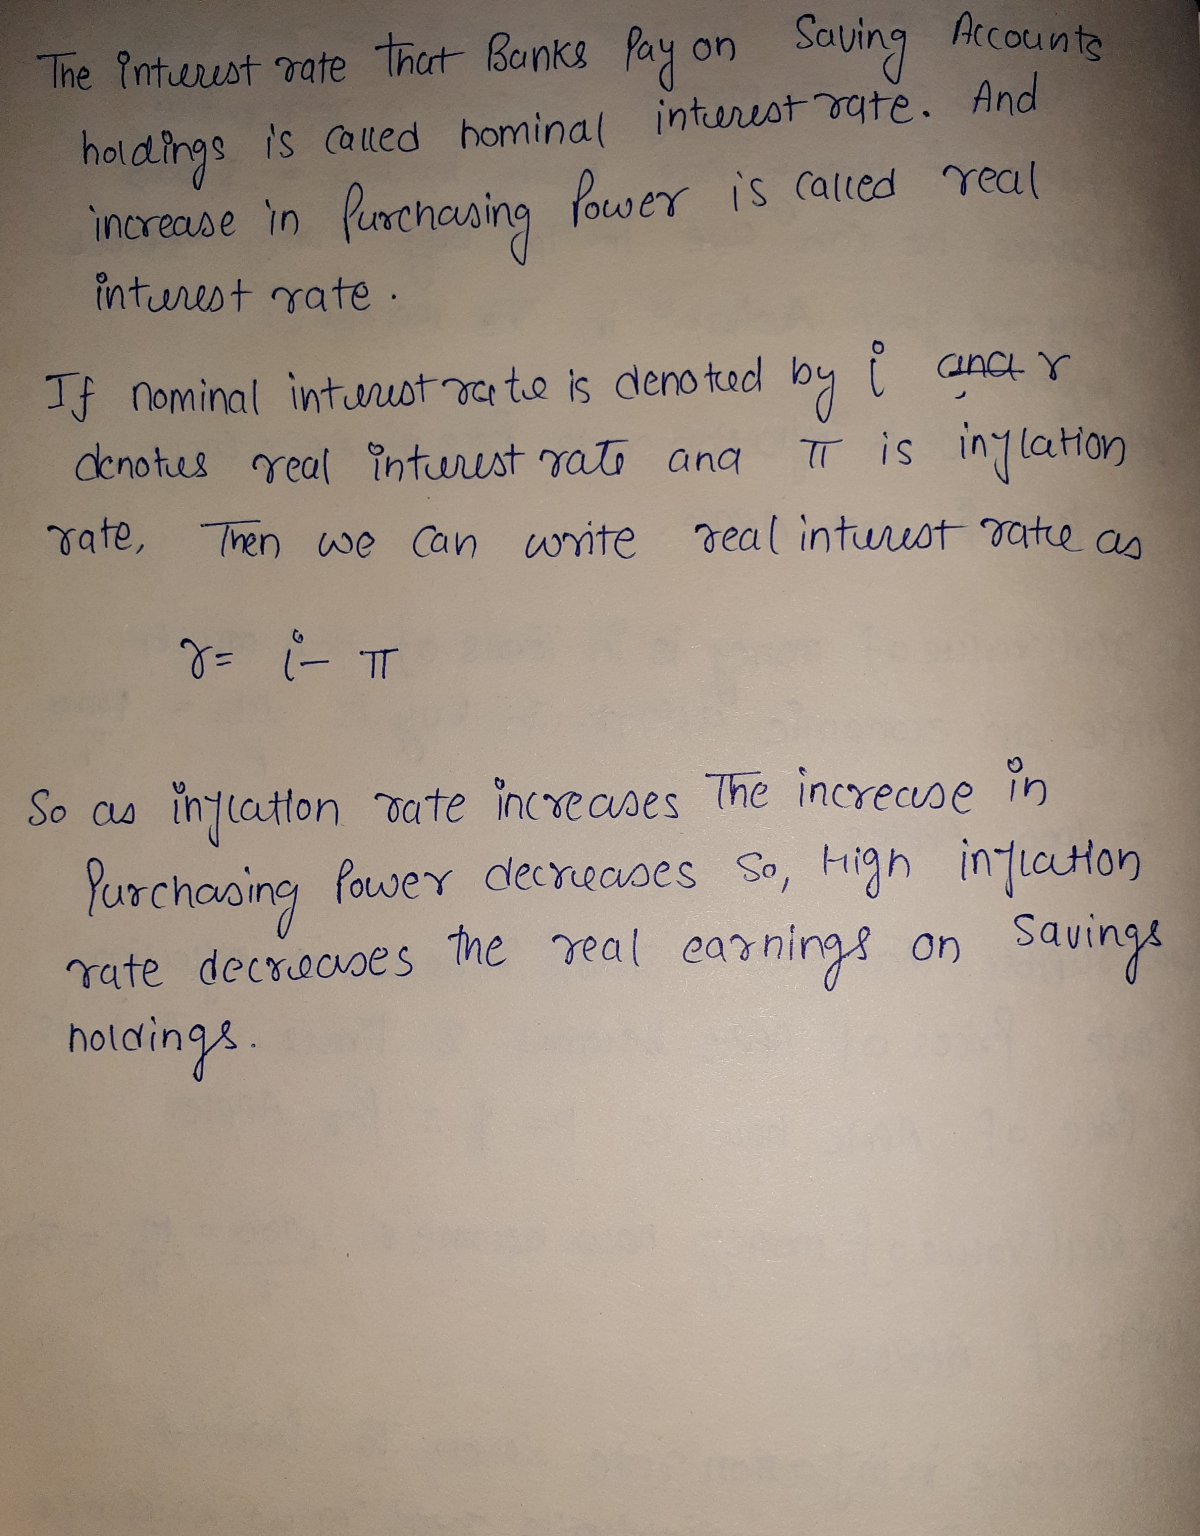 The interest rate that Banks Pay on Saving Accounts
holdings is called nominal interest rate. And
increase in Purchasing Power is called real
interest rate.
If nominal interest rate is denoted by i and r
denotes real interest rate and π is inflation
rate, Then we can write real interest rate as
r= i- π
So as inflation rate increases The increase in
Purchasing Power decreases So, High inflation
rate decreases the real earnings on Savings
holdings.